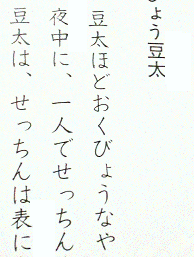 ょう豆太
豆太ほどおくびょうなや
夜中に、一人でせっちん
豆太は、せっちんは表に